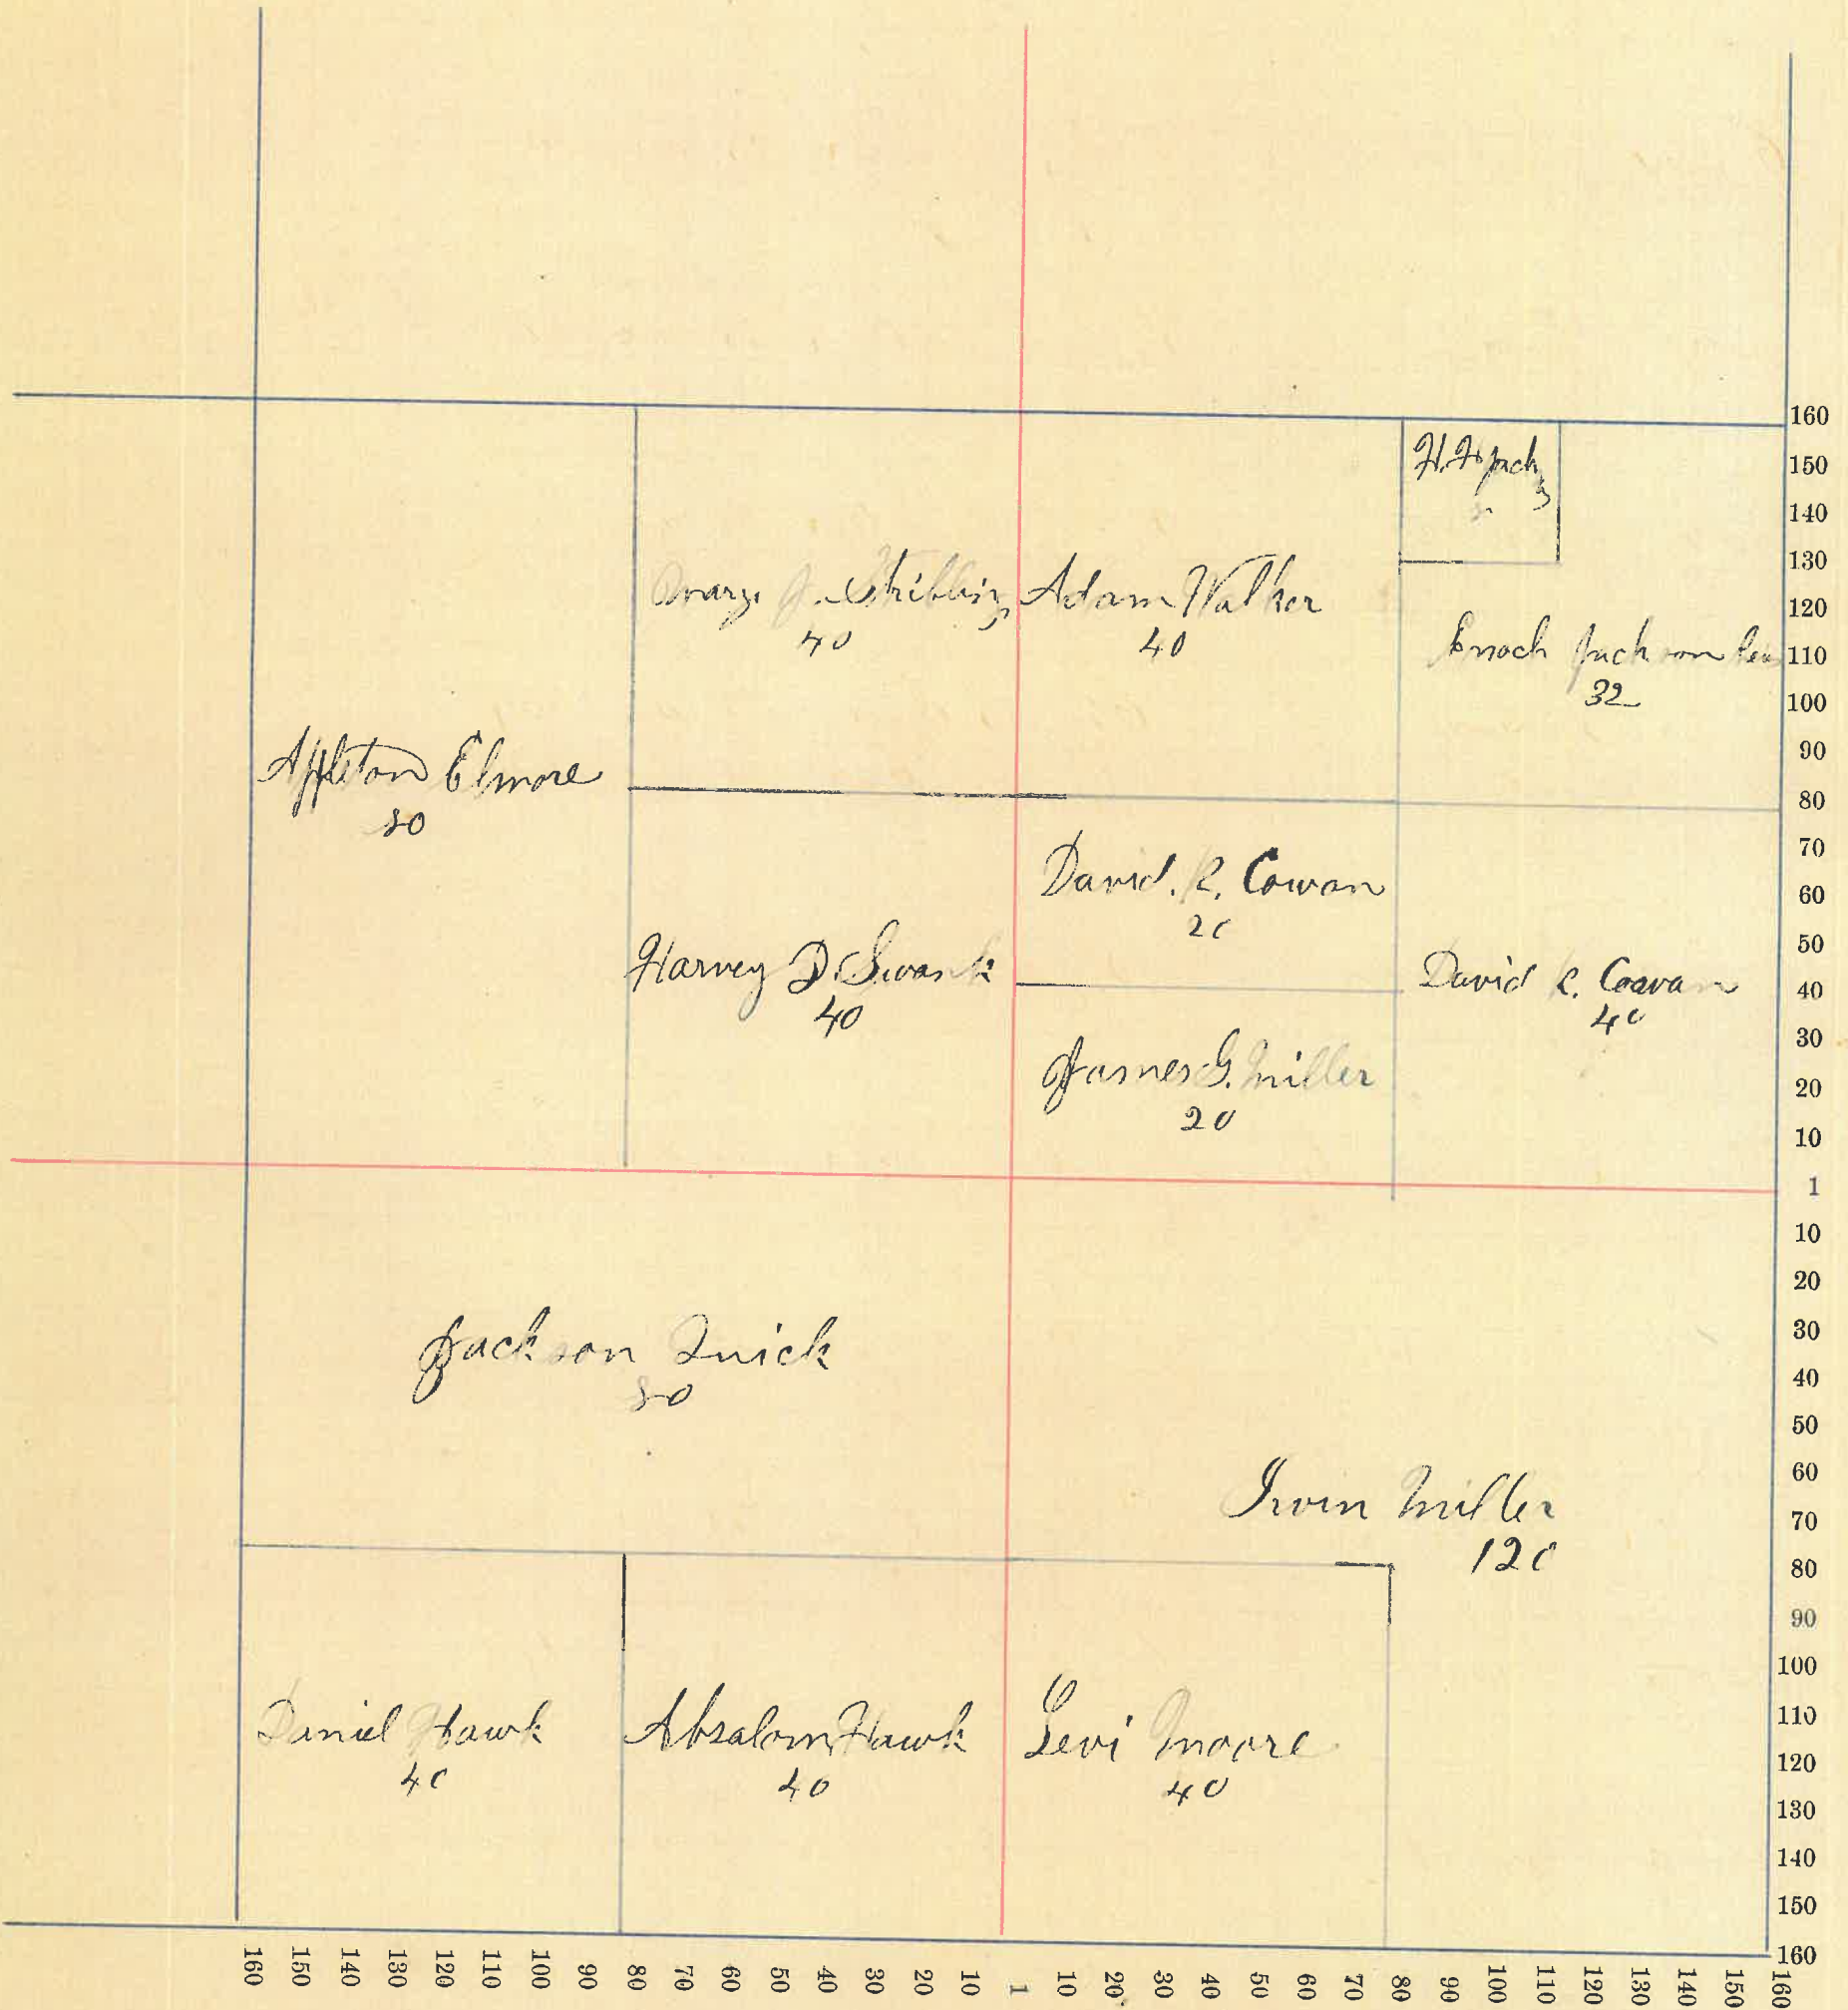 H. H. Jack
Mary J. Stribling
40
Adam Walker
40
Enoch Jackson
32
Appleton Elmore
80
David. R. Cowan
20
Harvey D. Swank
40
David R. Cowan
40
James G. Miller
20
Jackson Quick
80
Irvin Miller
120
Daniel Hawk
40
Absalom Hawk
40
Levi Moore
40
160
150
140
130
120
110
100
90
80
70
60
50
40
30
20
10
1
10
20
30
40
50
60
70
80
90
100
110
120
130
140
150
160
160 150 140 130 120 110 100 90 80 70 60 50 40 30 20 10 1 10 20 30 40 50 60 70 80 90 100 110 120 130 140 150 160